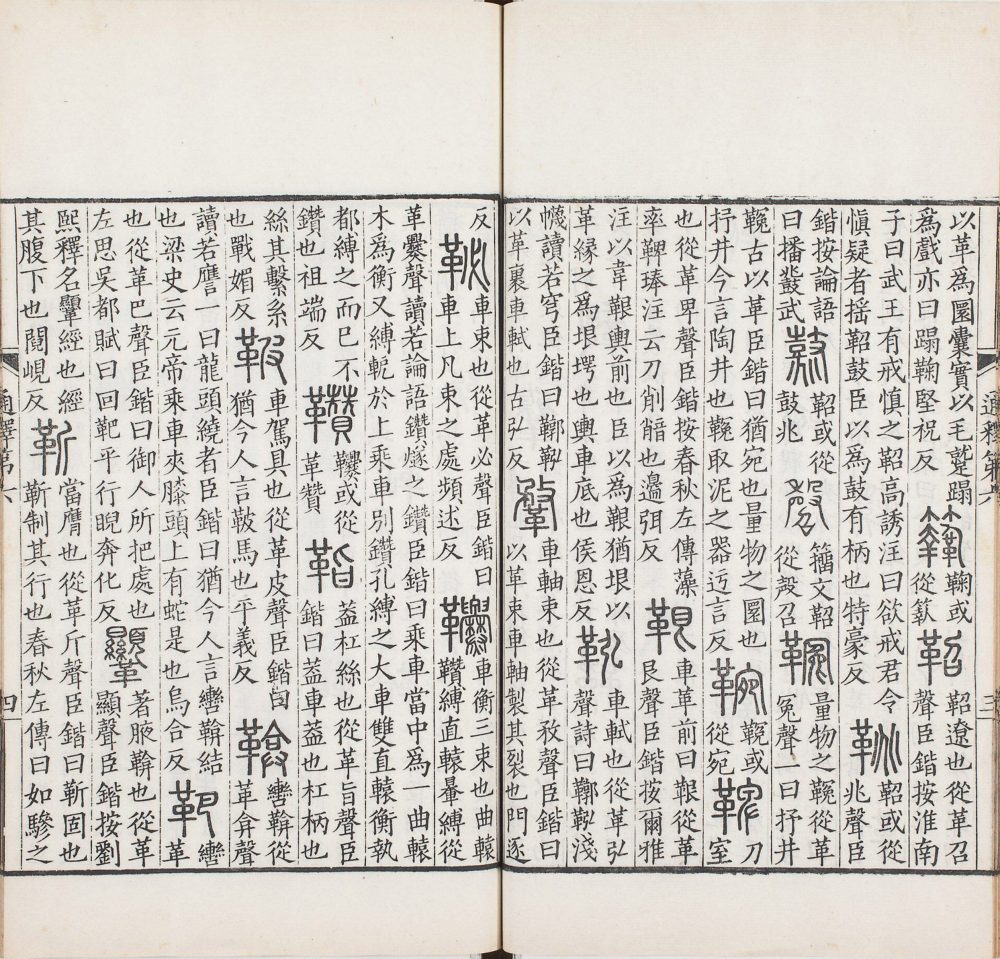 以革爲圜囊實以毛蹵蹋爲戲亦曰蹋鞠堅祝反 鞠或從 鞀 鞀遼也從革召聲臣鍇按淮南
子曰武王有戒慎之鞀高誘注曰欲戒君令慎疑者揺鞀鼓臣以爲鼓有柄也特豪反 鞉 鞀或從兆聲臣
鍇按論語曰播鼗武 鼗 鞀或從鼓兆 籕文鞀從殸召 鞔 量物之鞔從革冤聲一曰抒井
鞔古以革臣鍇曰猶宛也量物之圜也抒井今言陶井也鞔取泥之器迃言反 鞔或從宛 鞞 刀室
也從革卑聲臣鍇按春秋左傳藻率鞞琫注云刀削也邊弭反 鞎 車革前曰鞎從革艮聲臣鍇按爾雅
注以韋鞎輿前也臣以爲鞎猶垠以革緣之爲垠堮也輿車底也侯恩反 鞃 車軾也從革弘聲詩曰鞹鞃淺
幭讀若穹臣鍇曰鞹鞃以革裹車軾也古弘反 鞪 車軸束也從革敄聲臣鍇曰以革束車軸製其裂也門逐
反 䩛 車束也從革必聲臣鍇曰車上凡束之處頻述反 䪍 車衡三束也曲轅鞼縛直轅暈縛從
革爨聲讀若論語鑽燧之鑽臣鍇曰乘車當中爲一曲轅木爲衡又縛軶於上乘車别鑽孔縛之大車雙直轅衡執
都縛之而已不鑽也祖端反 䪐 䪍或從革贊 𩊱 葢杠絲也從革旨聲臣鍇曰葢車葢也杠柄也
絲其繫系也戰媚反 鞁 車駕具也從革皮聲臣鍇曰猶今人言鞁馬也平義反 鞥 轡鞥從革弇聲
讀若膺一曰龍頭繞者臣鍇曰猶今人言轡鞥結也梁史云元帝乘車夾膝頭上有蛇是也烏合反 靶 轡革
也從革巴聲臣鍇曰御人所把處也左思吳都賦曰回靶乎行睨奔化反 韅 著腋鞥也從革顯聲臣鍇按劉
熙釋名韅經也經其腹下也閲峴反 靳 當膺也從革斤聲臣鍇曰靳固也靳制其行也春秋左傳曰如驂之
通釋第六
四